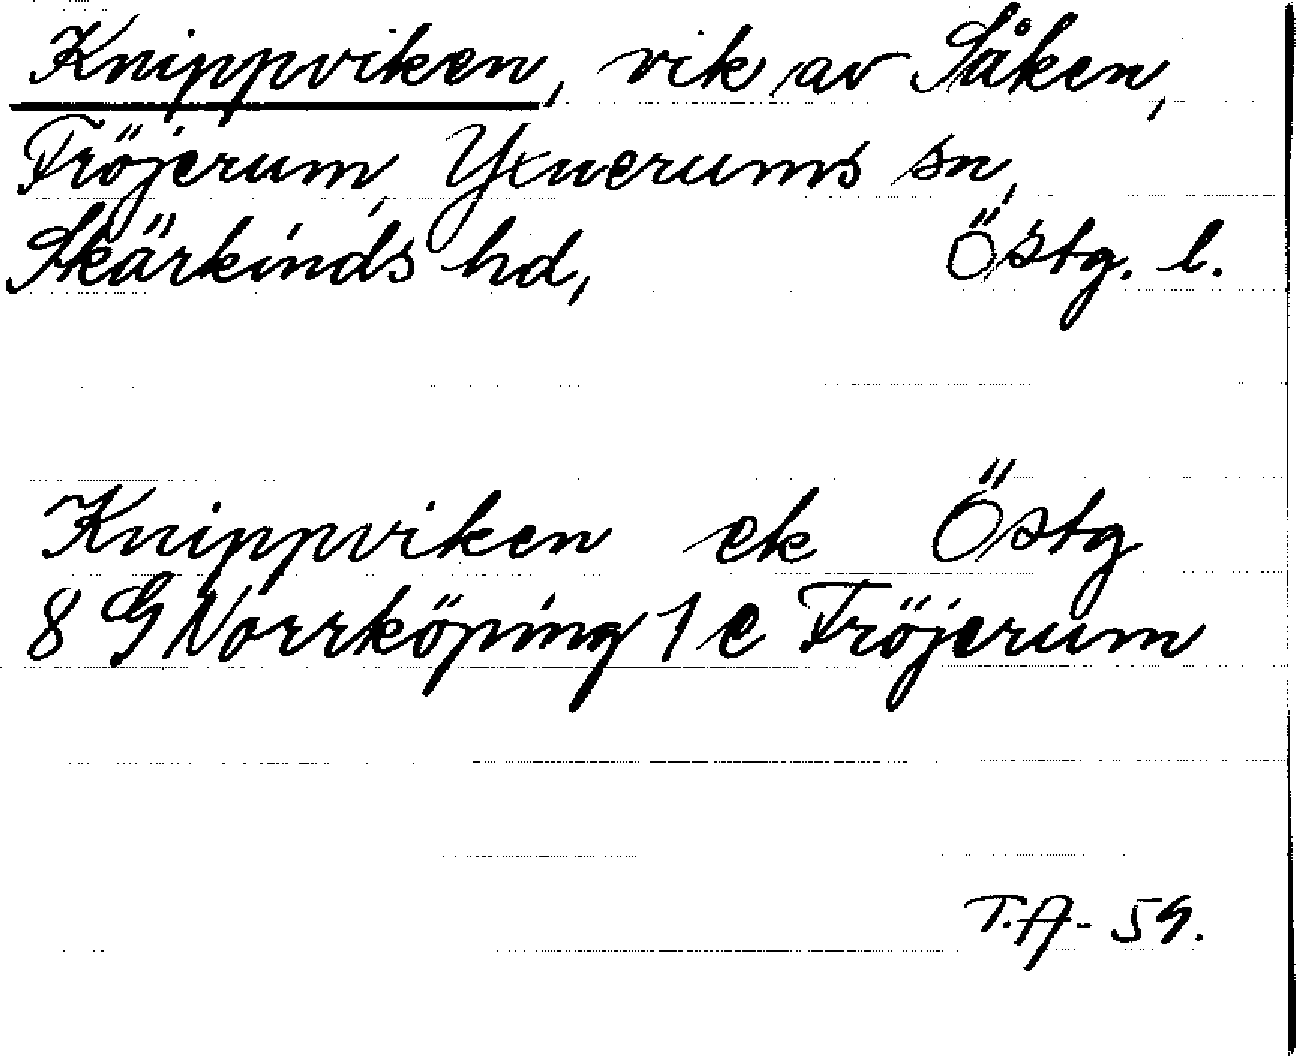 Knippviken, vik av Såken,
Fröjerum, Yxnerums sn,
Skärkinds hd, Östg. l.
Knippviken ek Östg
8 G Norrköping 1 e Fröjerum
T.A- 59.